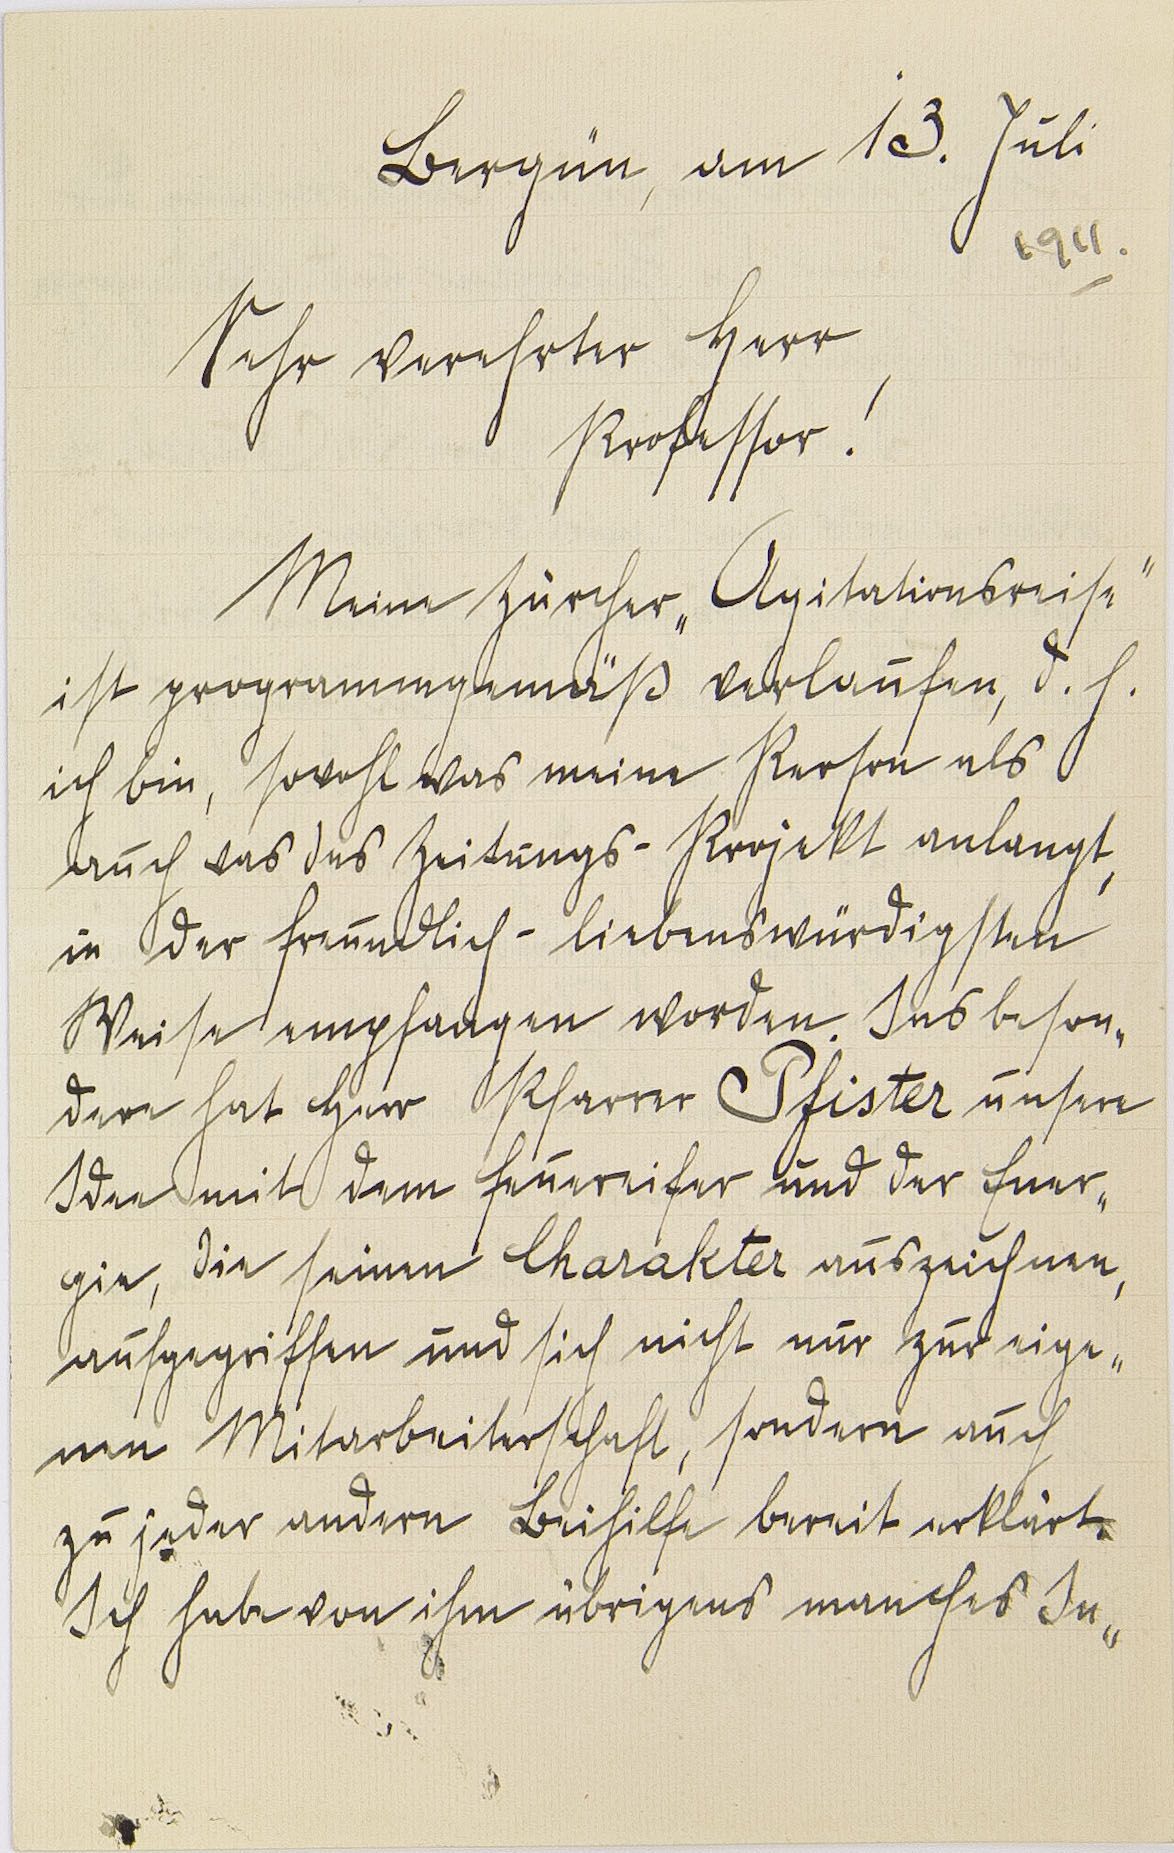 Bergün, am 13. Juli
1911.
Sehr verehrter Herr
Professor!
Meine Zürcher „Agitationsreise“
ist programmgemäß verlaufen, d. h.
ich bin, sowohl was meine Person als
auch was das Zeitungs-Projekt anlangt,
in der freundlich-liebenswürdigsten
Weise empfangen worden. Insbeson„
dere hat Herr Pfarrer Pfister unsere
Idee mit dem Feuereifer und der Ener„
gie, die seinen Charakter auszeichnen,
aufgegriffen und sich nicht nur zur eige„
nen Mitarbeiterschaft, sondern auch
zu jeder andern Beihilfe bereit erklärt.
Ich habe von ihm übrigens manches In„